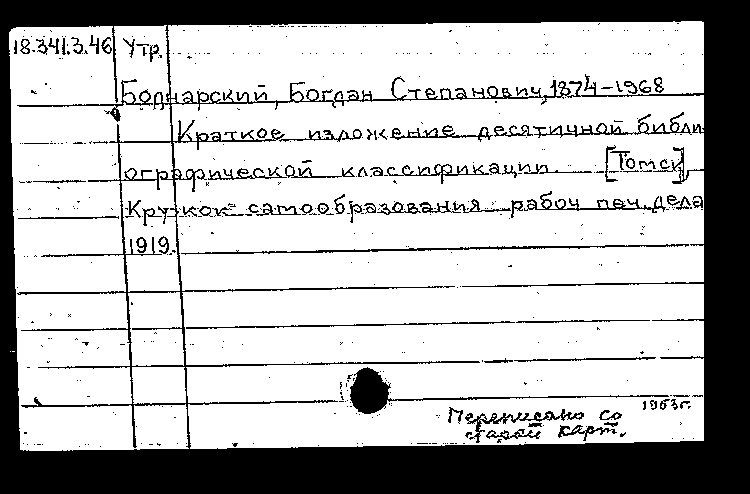 18.341.3.46 Утр.
Боднарский, Богдан Степанович, 1874-1968
Краткое изложение десятичной библи
ографической классификации. [Томск],
Кружок самообразования рабоч печ. дела
1919.
1963г.
Переписано со
старой карт.